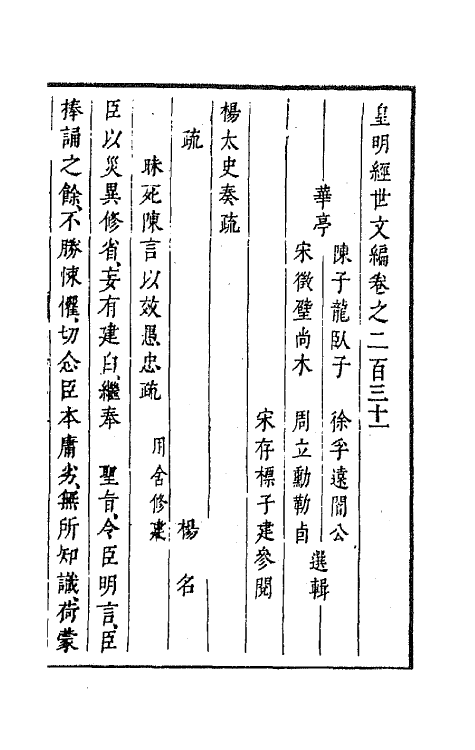 皇明經世文編卷之二百三十一
華亭
陳子龍臥子　徐孚遠闇公
宋徵璧尚木　周立勳勒卣
選輯
宋存標子建參閱
楊太史奏疏
疏　楊名
昧死陳言以效愚忠疏　用舍修建
臣以災異修省、妄有建白、繼奉　聖旨、令臣明言、臣
捧誦之餘、不勝悚懼、切念臣本庸劣、無所知識、荷蒙